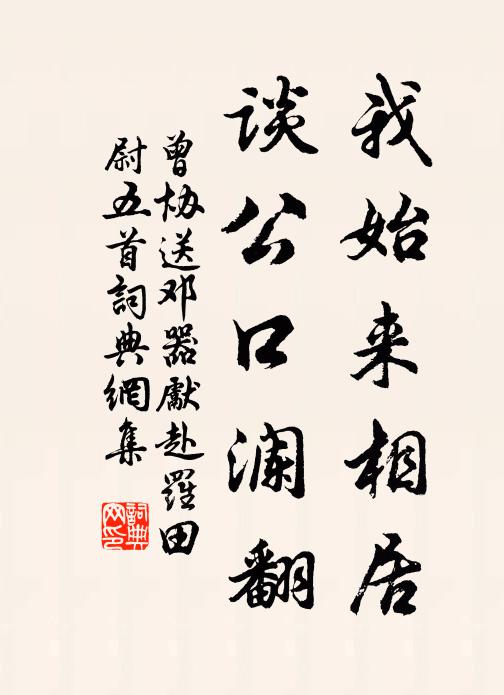 我始来相居
谈公口澜翻
曾协送邓器献赴罗田
尉五首词典網集
詞典网印